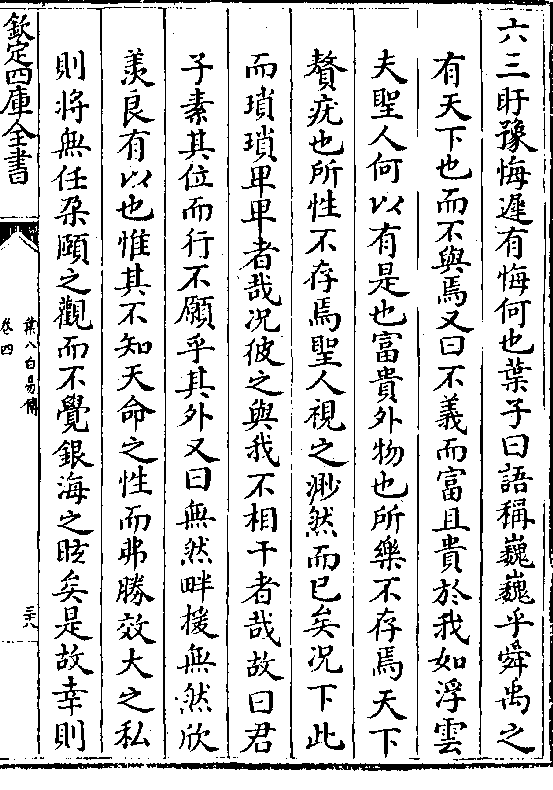 六三盱豫悔遲有悔何也葉子曰語稱巍巍乎舜禹之
有天下也而不與焉又曰不義而富且貴於我如浮雲
夫聖人何以有是也富貴外物也所樂不存焉天下
贅疣也所性不存焉聖人視之渺然而已矣況下此
而瑣瑣卑卑者哉况彼之與我不相干者哉故曰君
子素其位而行不願乎其外又曰無然畔援無然欣
羨良有以也惟其不知天命之性而弗勝效大之私
則將無任朶頤之觀而不覺銀海之眩矣是故幸則
欽定四庫全書
葉八白易傳
卷四
三六